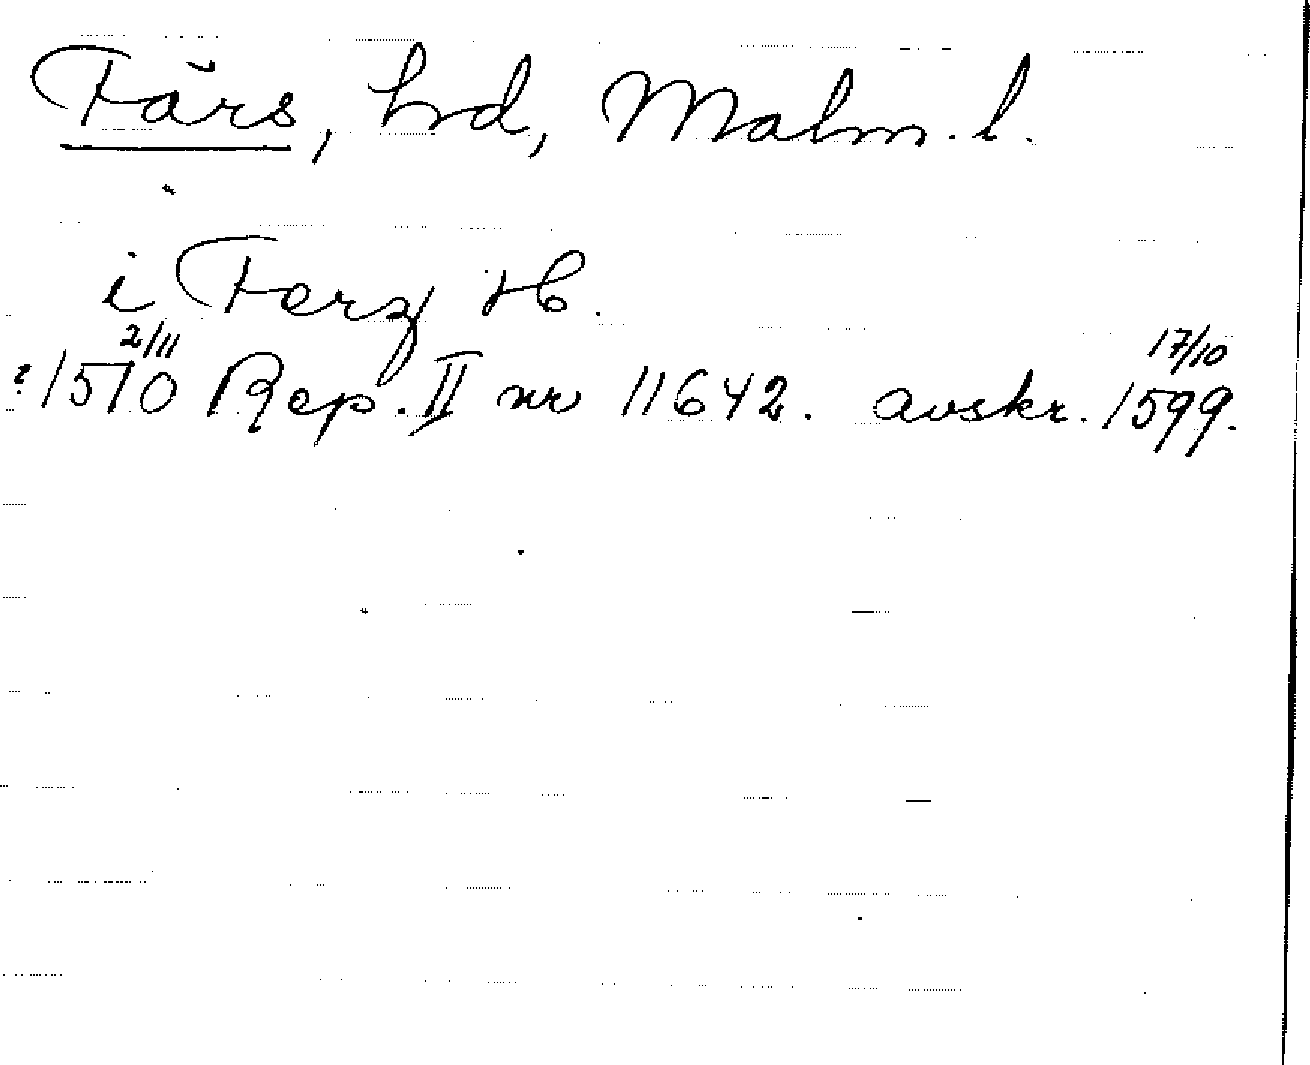 Färs, hd, Malm. l.
i Ferz H.
? 1510 2/11 Rep. II nr 11642. avskr. 1599 17/10.